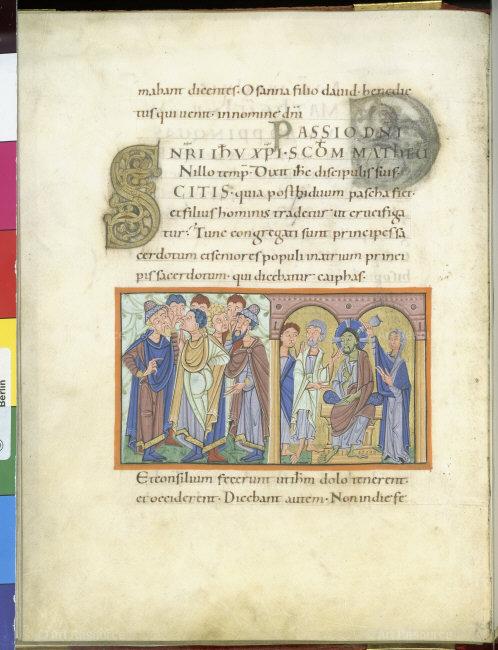 mabant dicentes· Osanna filio dauid· benedic
tus qui uenit· innomine dñi
PASSIO DNI
NRI IHV XPI· S͞C͞D͞M MATHEU
Nillo temp̄· Dixit ihc discipulis suis·
SCITIS· quia postbiduum pascha fiet·
et filius hominis tradetur· ut crucifiga
tur· Tunc congregati sunt principes sa
cerdotum et seniores populi inatrium princi
pis sacerdotum· qui dicebatur caiphas·
Et consilium fecerunt ut ihm dolo tenerent·
et occiderent· Dicebant autem· Non in die fe
Berlin
Art Resource
Art Resource